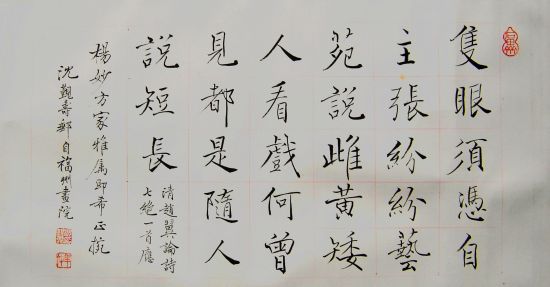 隻眼須憑自
主張紛紛藝
苑說雌黃矮
人看戲何曾
見都是隨人
說短長
清趙翼論詩
七絕一首應
楊妙方家雅屬即希正捥
沈覲壽郵自福州畫院